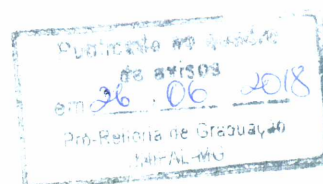 Publicado no quadro
de avisos
em 26 . 06 . 2018
Pró-Reitoria de Graduação
UNIFAL-MG